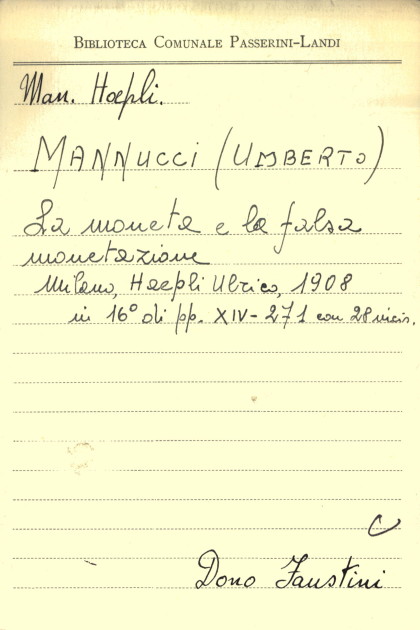 BIBLIOTECA COMUNALE PASSERINI-LANDI
Man. Hoepli.
MANNUCCI (UMBERTO)
La moneta e la falsa
monetazione
Milano, Hoepli Ulrico, 1908
in 16° di pp. XIV-271 con 28 incis.
C
Dono Faustini